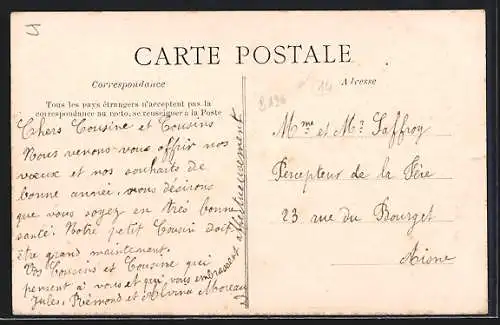 CARTE POSTALE
Correspondance
Tous les pays étrangers n'acceptent pas la
correspondance au recto, se renseigner à la Poste
Chers Cousine et Cousins
Nous venons vous offrir nos
vœux et nos souhaits de
bonne année, nous désirons
que vous soyez en très bonne
santé. Notre petit Cousin doit
être grand maintenant.
Vos Cousins et Cousine qui
pensent à vous et qui vous embrassent
Jules, Rémond et Alvina Moreau
affectueusement
14
Adresse
Mme et Mr Saffroy
Percepteur de la Fère
23 rue du Bourget
Aisne